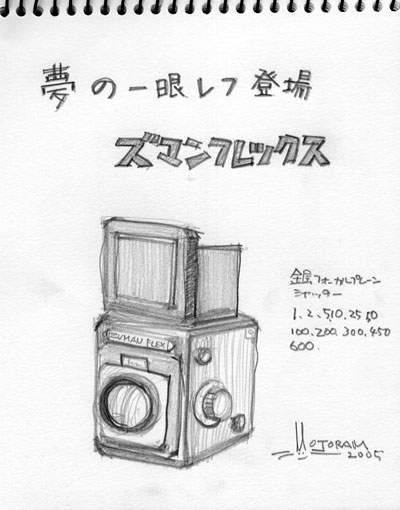 夢の一眼レフ登場
ズマンフレックス
ZUMAN FLEX
金属フォーカルプレーン
シャッター
1.2.5.10.25.50
100.200.300.450
600.
MOTORAM
2005